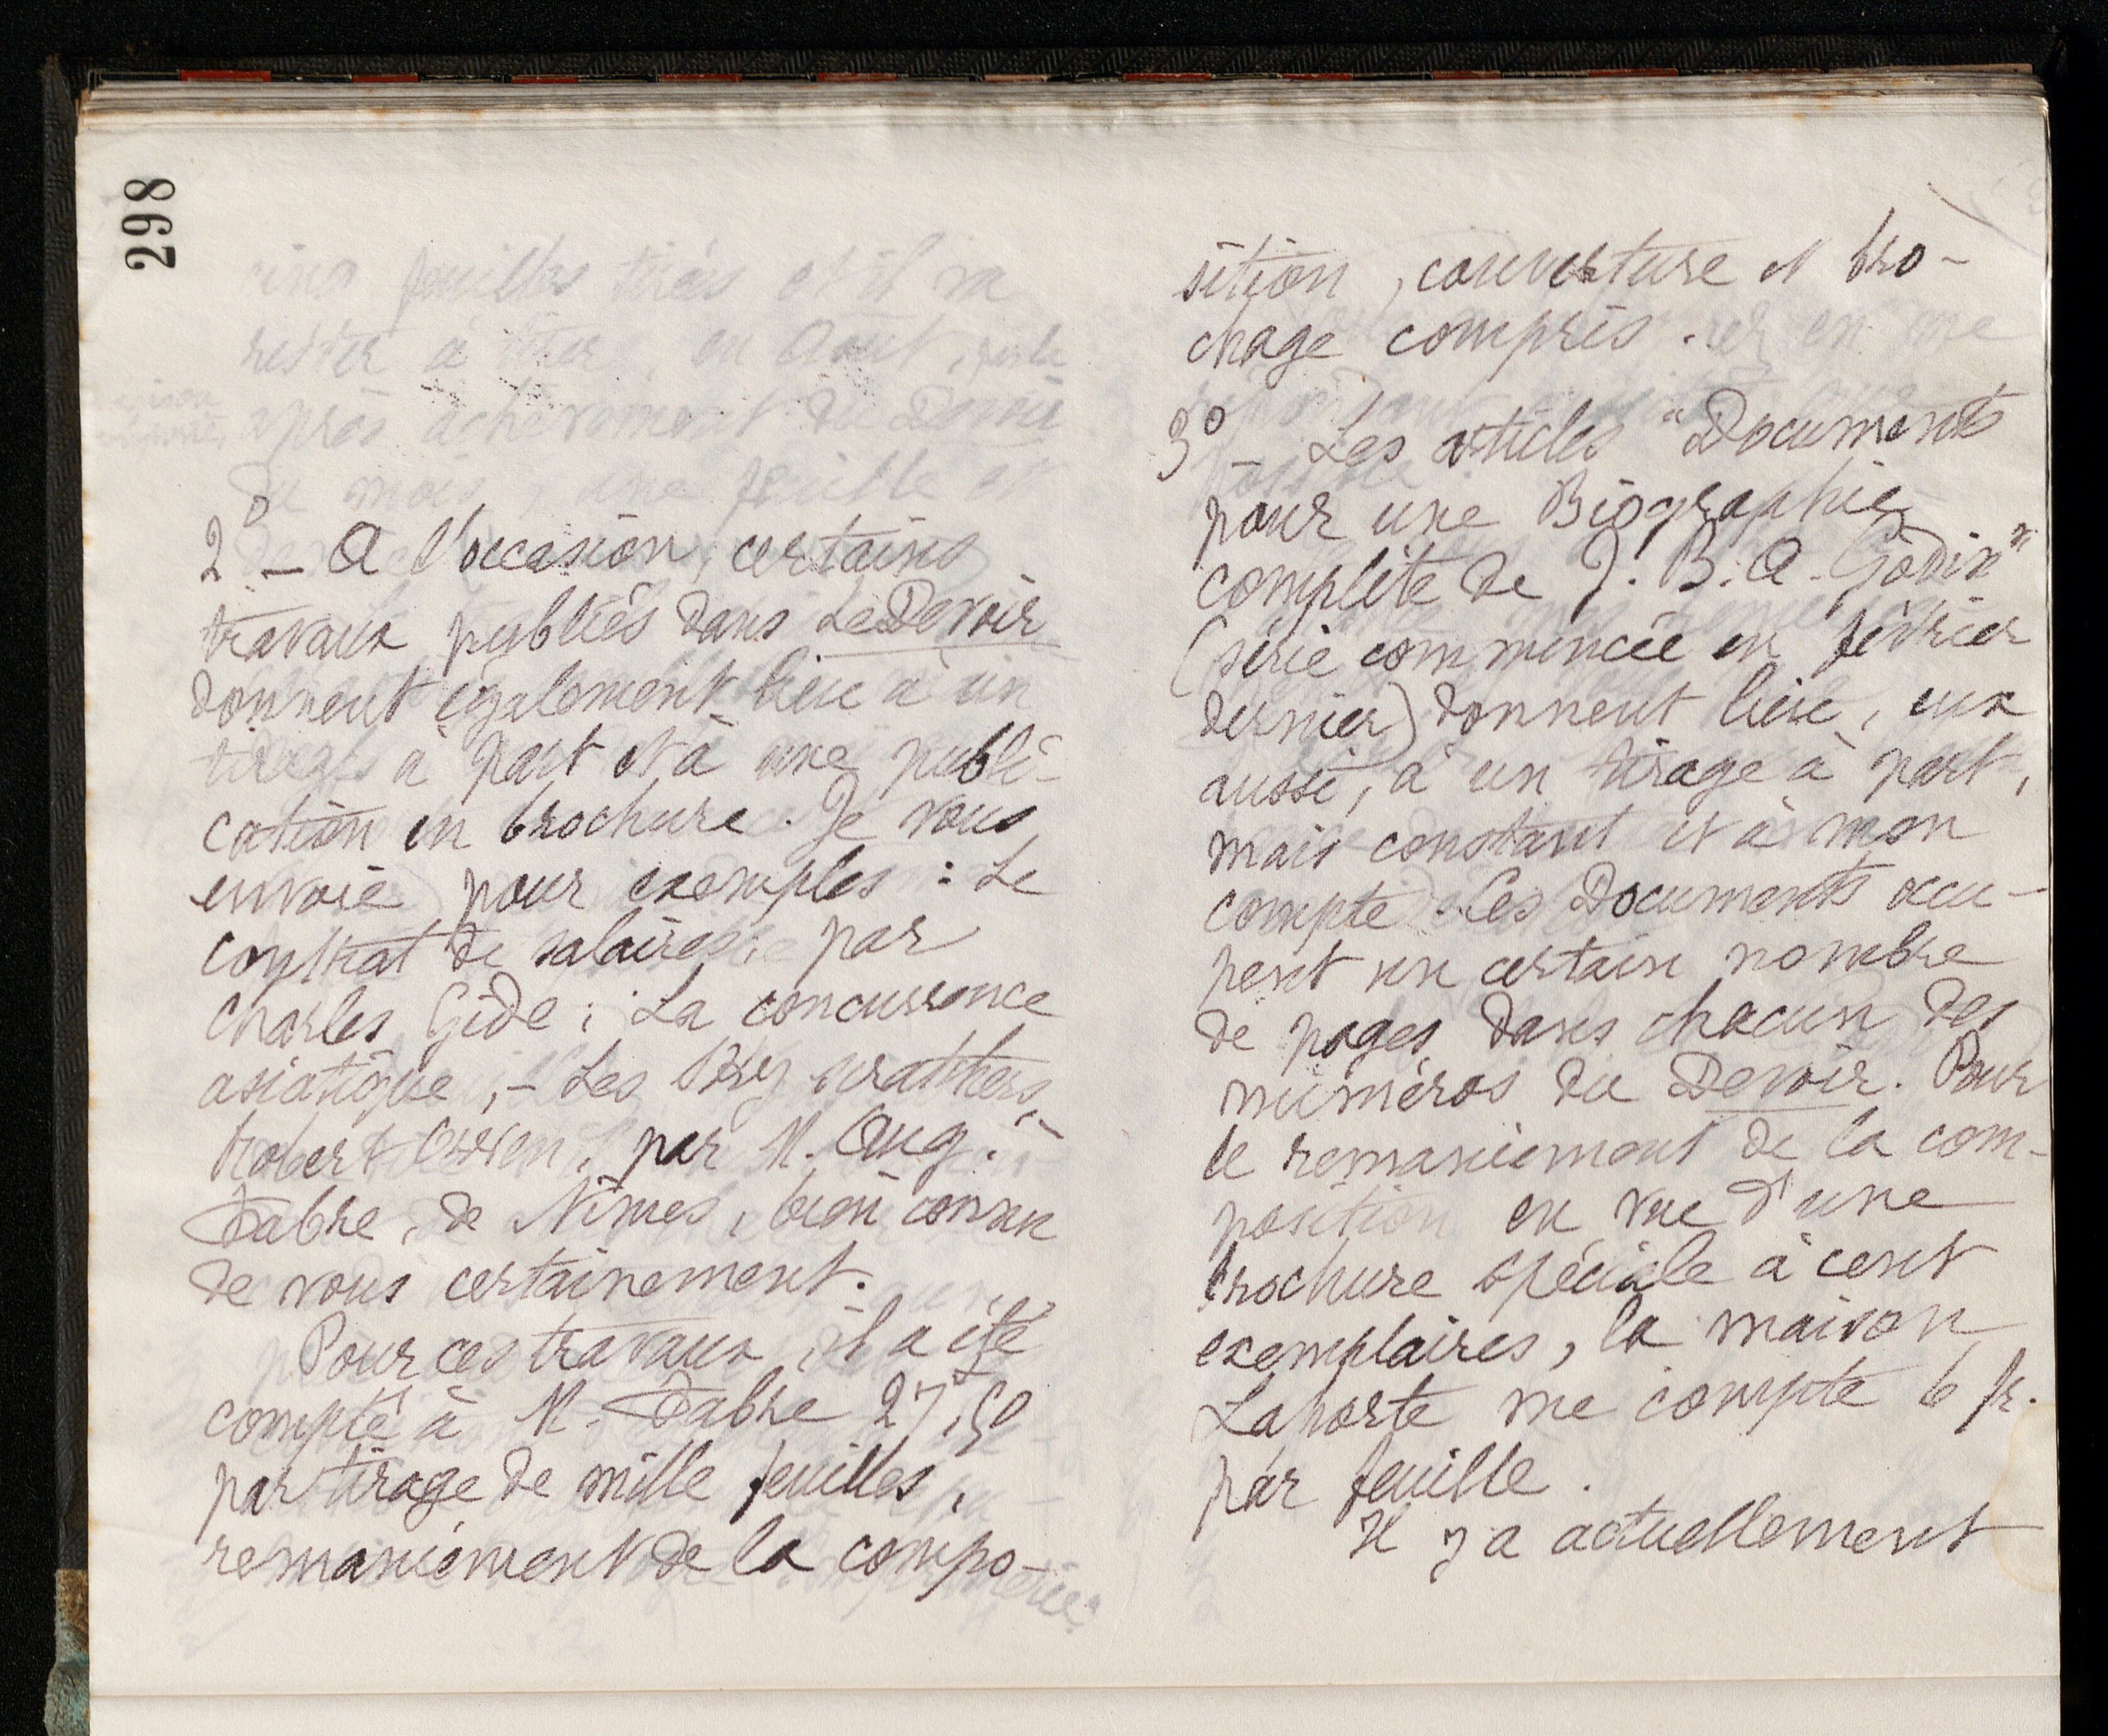 298
2° – A l'occasion, certains
travaux publiés dans Le Devoir
donnent également lieu à un
tirage à part et à une publi-
cation en brochure. Je vous
envoie pour exemples : Le
contrat de salaire, par
Charles Gide ; La concurrence
asiatique, – Les
Robert Owen, par M. Aug.
Fabre, de Nîmes, bien connu
de vous certainement.
Pour ces travaux, il a été
compté à M. Fabre 27f,50
par tirage de mille feuilles,
remaniement de la compo-
sition, couverture et bro-
chage compris.
3° – Les articles "Documents
pour une Biographie
complète de J. B. A. Godin"
(série commencée en février
dernier) donnent lieu, eux
aussi, à un tirage à part,
mais constant et à mon
compte. Ces Documents occu-
pent un certain nombre
de pages dans chacun des
numéros du Devoir. Pour
le remaniement de la com-
position en vue d'une
brochure spéciale à cent
exemplaires, la maison
Laporte me compte 6 fr.
par feuille.
Il y a actuellement